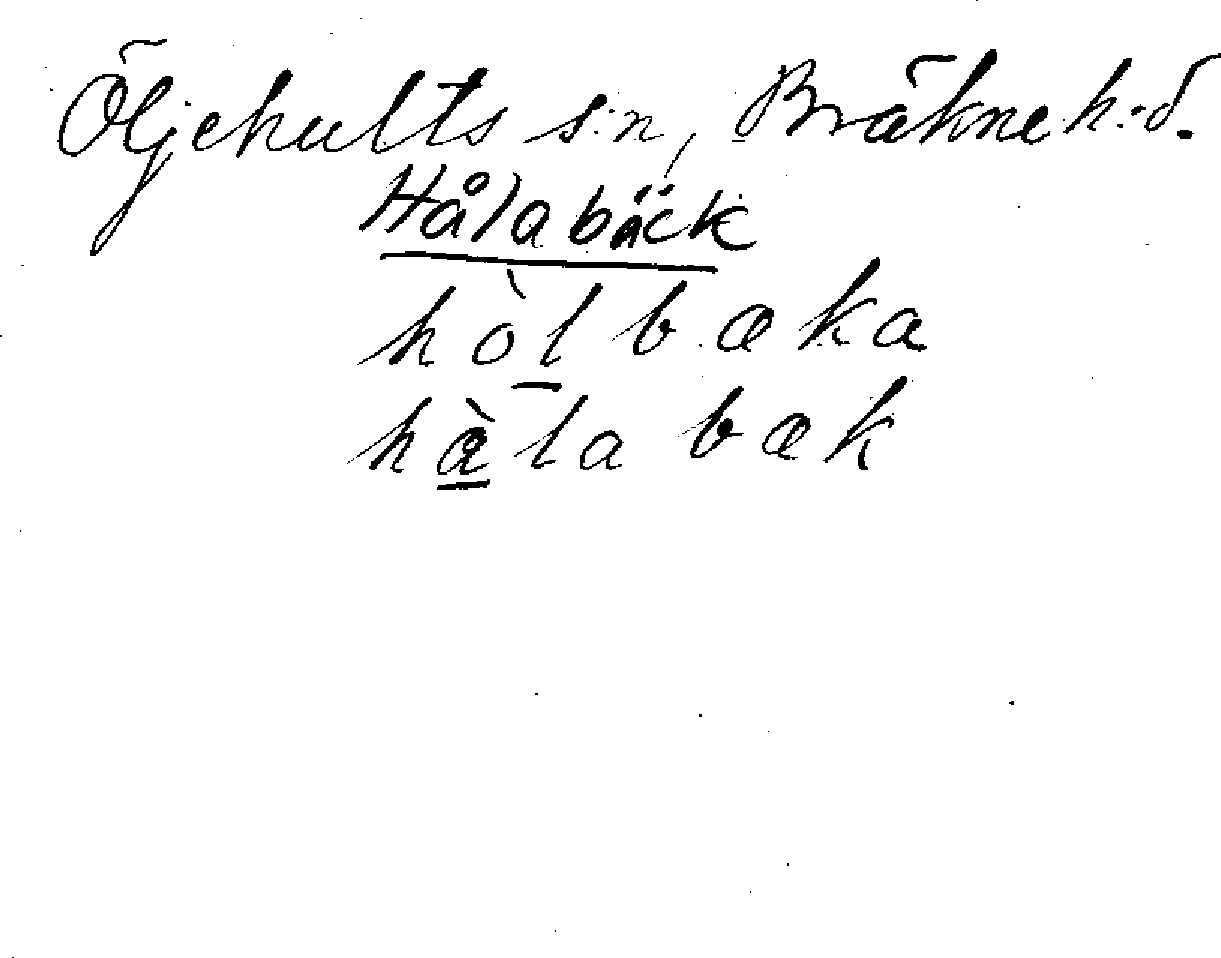 Öljehults s:n, Bräkne h:d.
Hålabäck
hòl bæka
hàla bæk